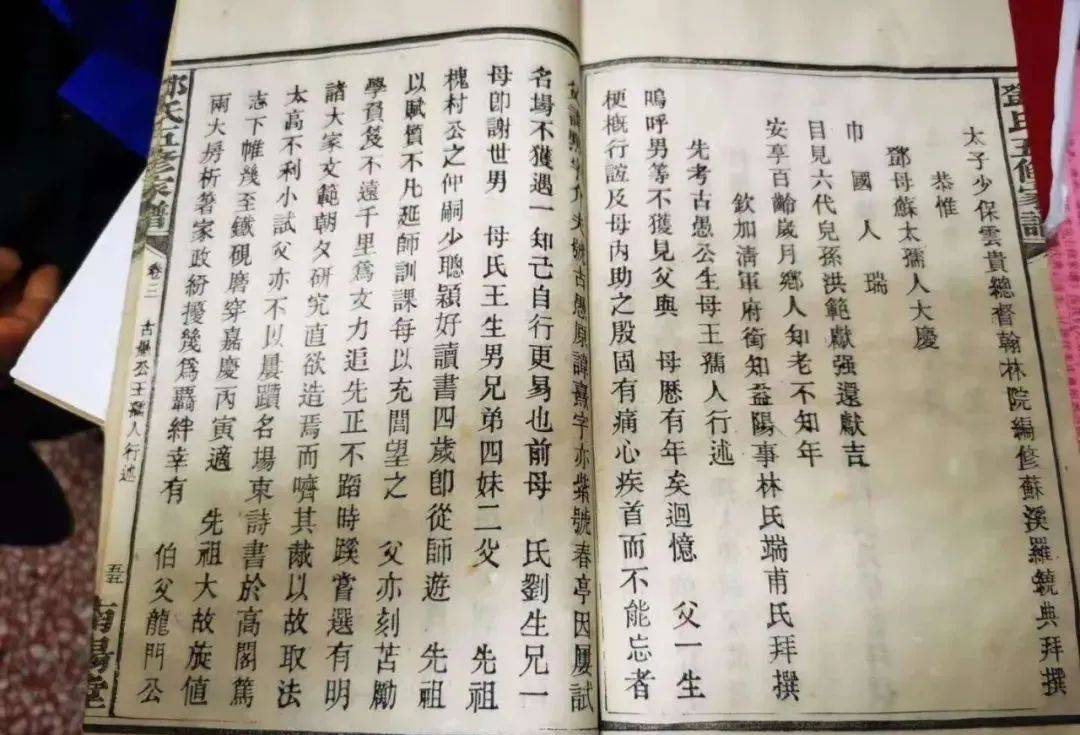 鄧氏五修家譜
太子少保雲貴總督翰林院編修蘇溪羅繞典拜撰
恭惟
鄧母蘇太孺人大慶
巾國人瑞
目見六代兒孫洪範獻强還獻吉
安享百齡歲月鄉人知老不知年
欽加清軍府銜知益陽事林氏端甫氏拜撰
先考古愚公生母王孺人行述
嗚呼男等不獲見父與 母歷有年矣迴憶 父一生
梗概行誼及母內助之殷固有痛心疾首而不能忘者
夫號古愚原諱熹字亦紫號春亭因屢試
名場不獲遇一知己自行更易也前母 氏劉生兄一
母卽謝世男 母氏王生男兄弟四妹二父 先祖
槐村公之仲嗣少聰穎好讀書四歲卽從師遊 先祖
以賦質不凡延師訓課每以充閭望之 父亦刻苦勵
學負笈不遠千里爲文力追先正不蹈時蹊嘗選有明
諸大家文範朝夕研究直欲造焉而嚌其胾以故取法
太高不利小試父亦不以屢躓名場束詩書於高閣篤
志下帷幾至鐵硯磨穿嘉慶丙寅適 先祖大故旋值
兩大房析著家政紛擾幾爲羈絆幸有 伯父龍門公
鄧氏五修家譜
卷三
古愚公王孺人行述
五
南陽堂